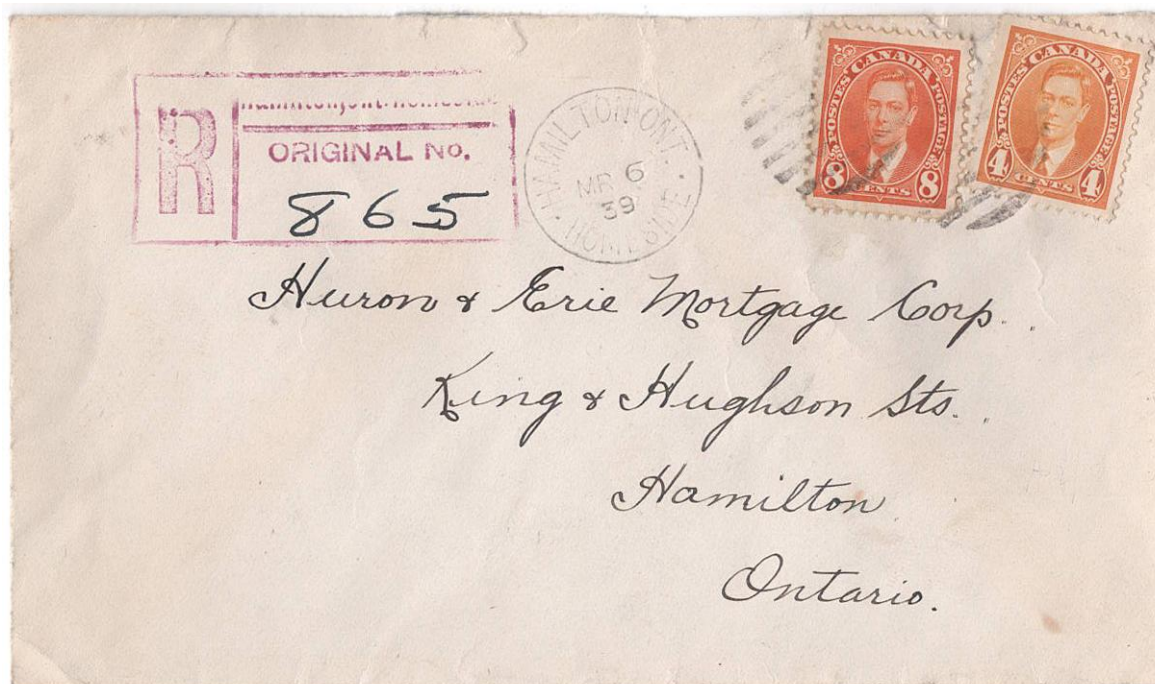 R
ORIGINAL No.
865
HAMILTON ONT.
MR 6
39
HOMESIDE
POSTES CANADA POSTAGE
8 CENTS 8
POSTES CANADA POSTAGE
4 CENTS 4
Huron & Erie Mortgage Corp.
King & Hughson Sts.
Hamilton
Ontario.